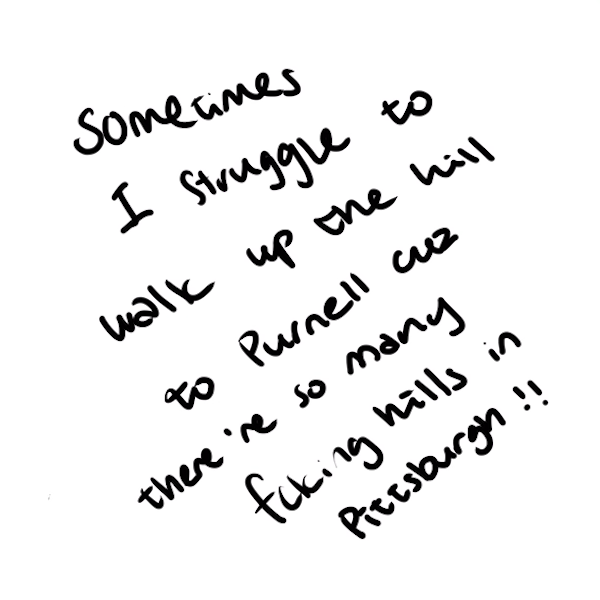 Sometimes
I struggle to
walk up the hill
to Purnell cuz
there're so many
fcking hills in
Pittsburgh!!